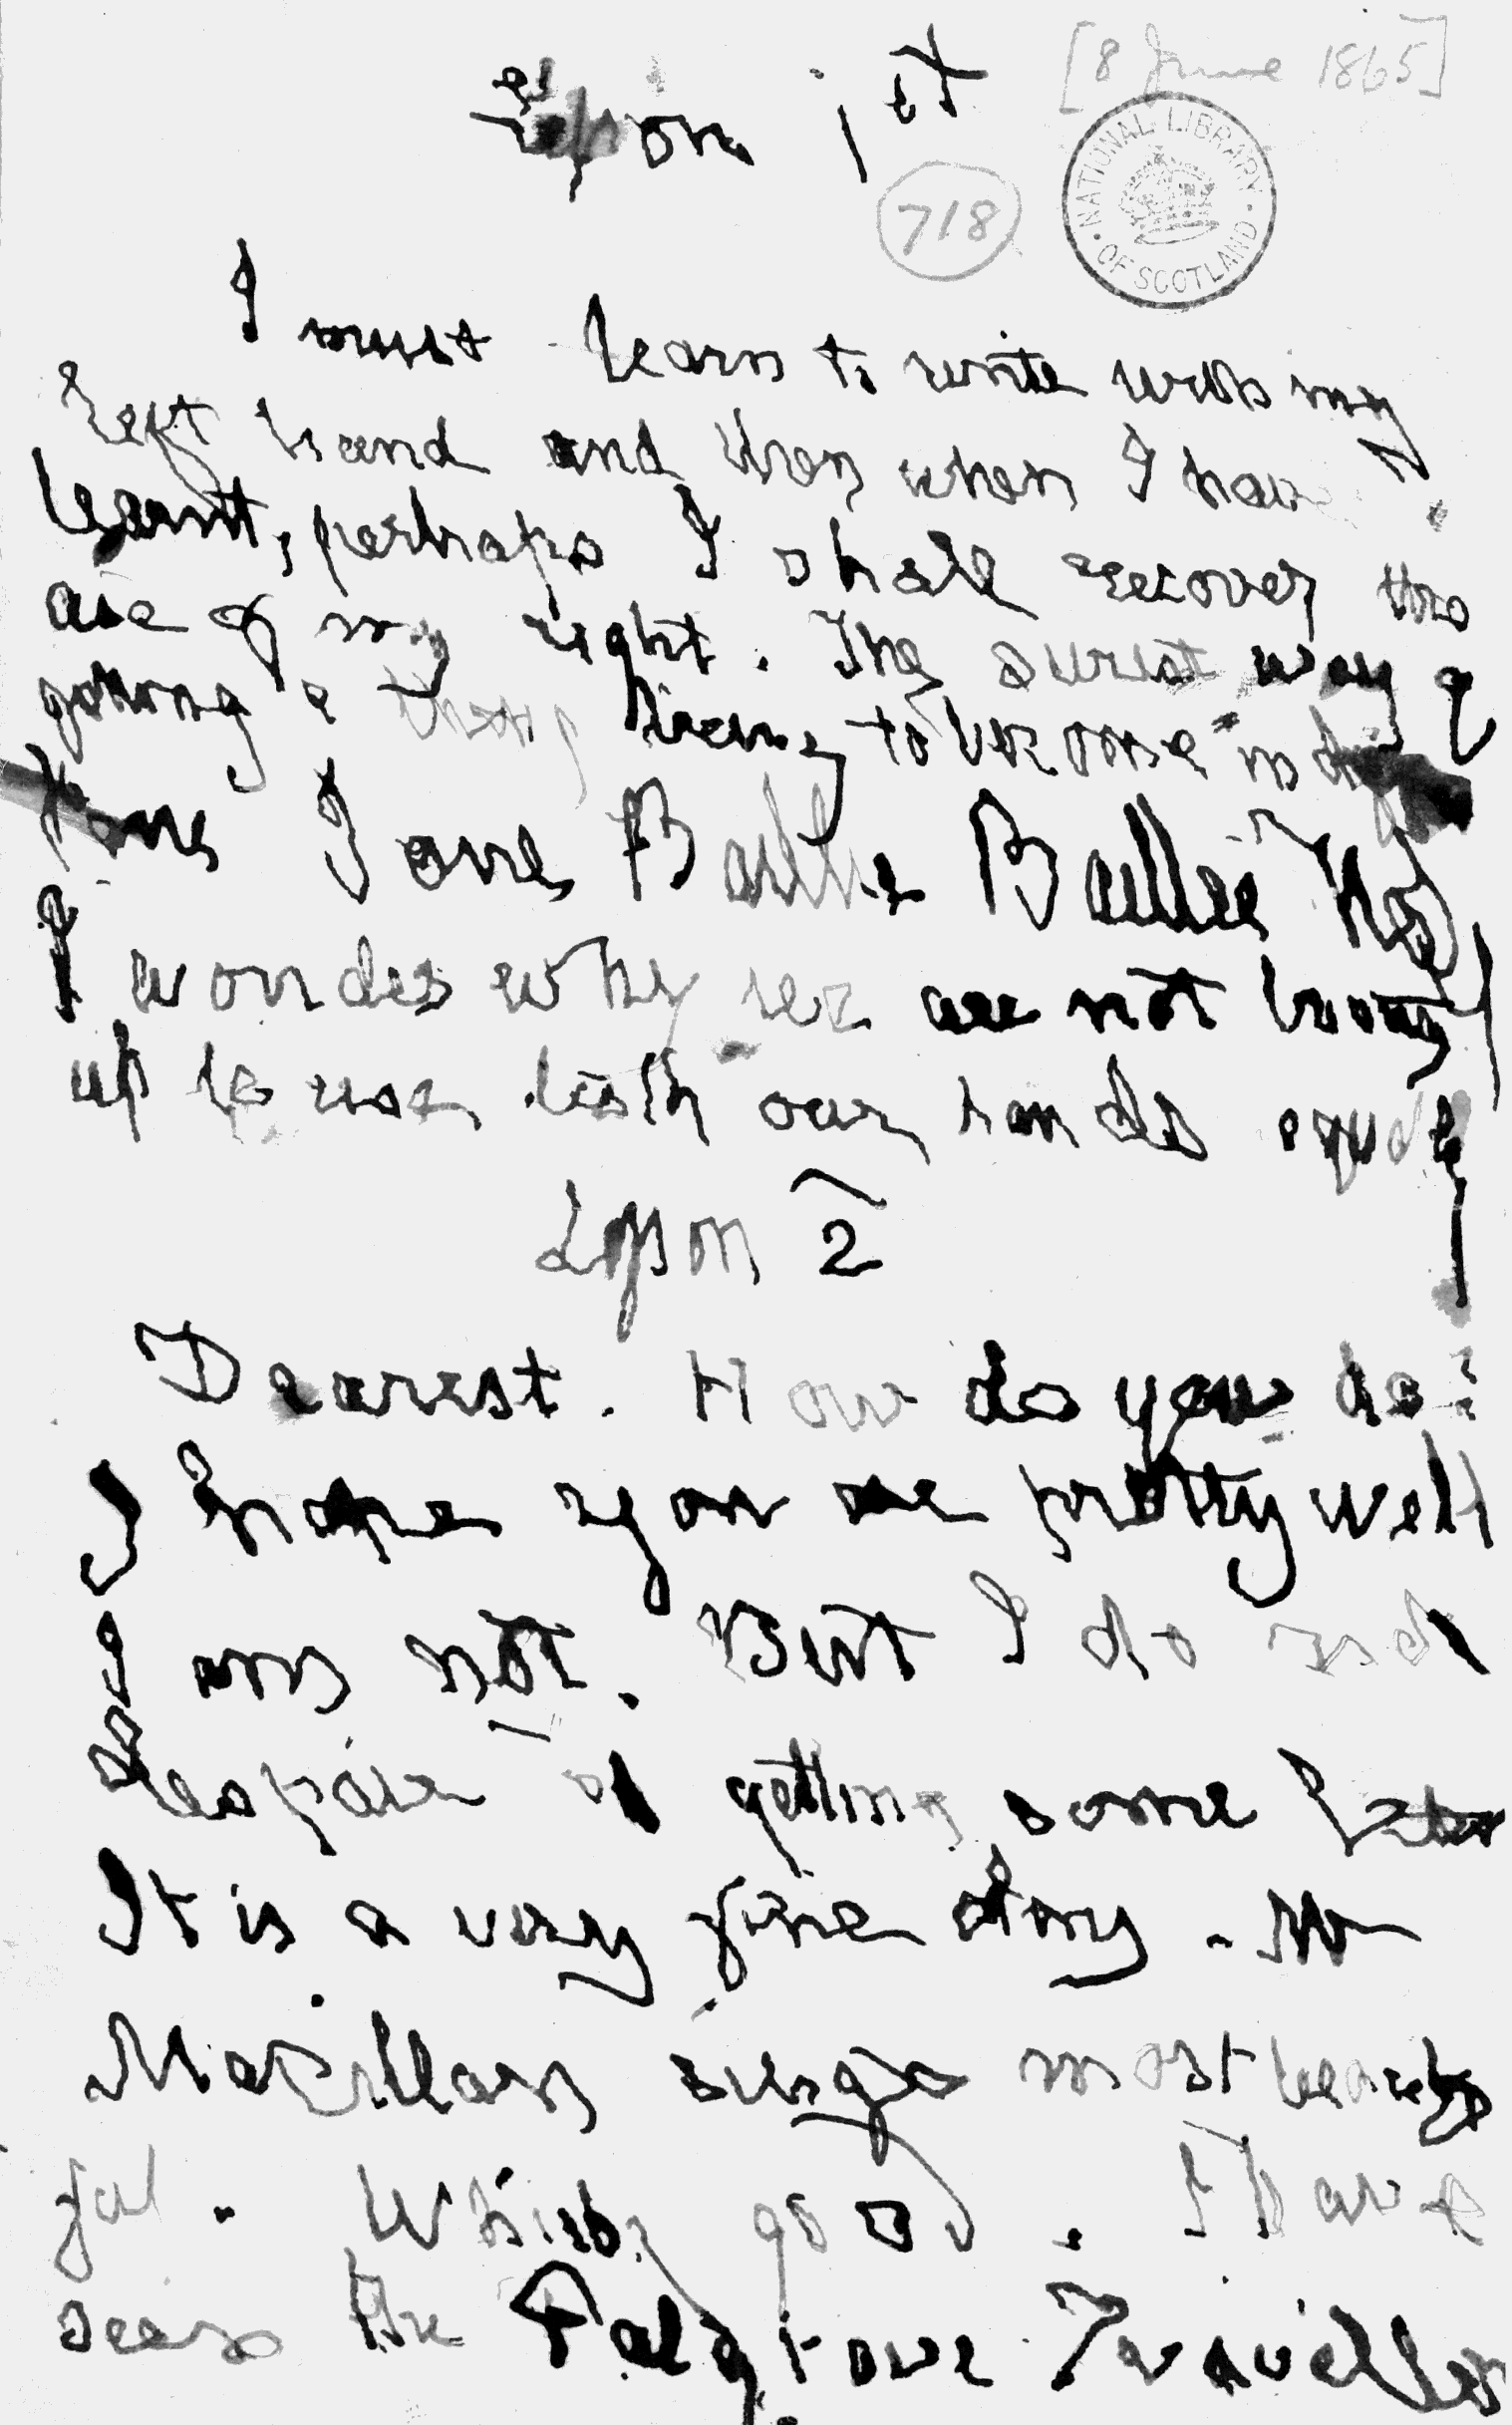 Lesson 1st
[8 June 1865]
718
NATIONAL LIBRARY OF SCOTLAND
I must learn to write with my
left hand and then when I have
learnt, perhaps I shall recover the
use of my right. The surest way of
getting a thing being to become indif
Jane Baillie Baillie
I wonder why we are not brought
up to use both our hands equally
Lesson 2
Dearest. How do you do?
I hope you are pretty well
I am not. But I do not
despair of getting some better
It is a very fine day. Mr
Macmillan sings most beauty
ful. Whisky good. I have
seen the Palgrave Traveller